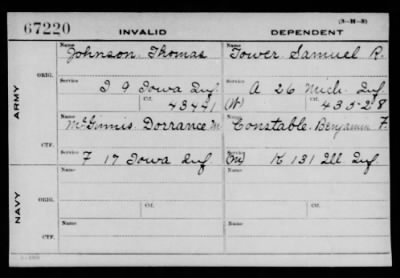 67220
INVALID
DEPENDENT
(3-M-3)
ARMY
NAVY
ORIG.
Name
Johnson Thomas
Name
Tower Samuel R.
Service
I 9 Iowa Inf
Ctf.
43441
Service
A 26 Mich Inf
Ctf.
(W) 435-28
CTF.
Name
McGinnis Dorrance M
Name
Constable Benjamin F.
Service
F 17 Iowa Inf
Service
(M) K 131 Ill Inf
ORIG.
Name
Name
Service
Ctf.
Service
Ctf.
CTF.
Name
Name